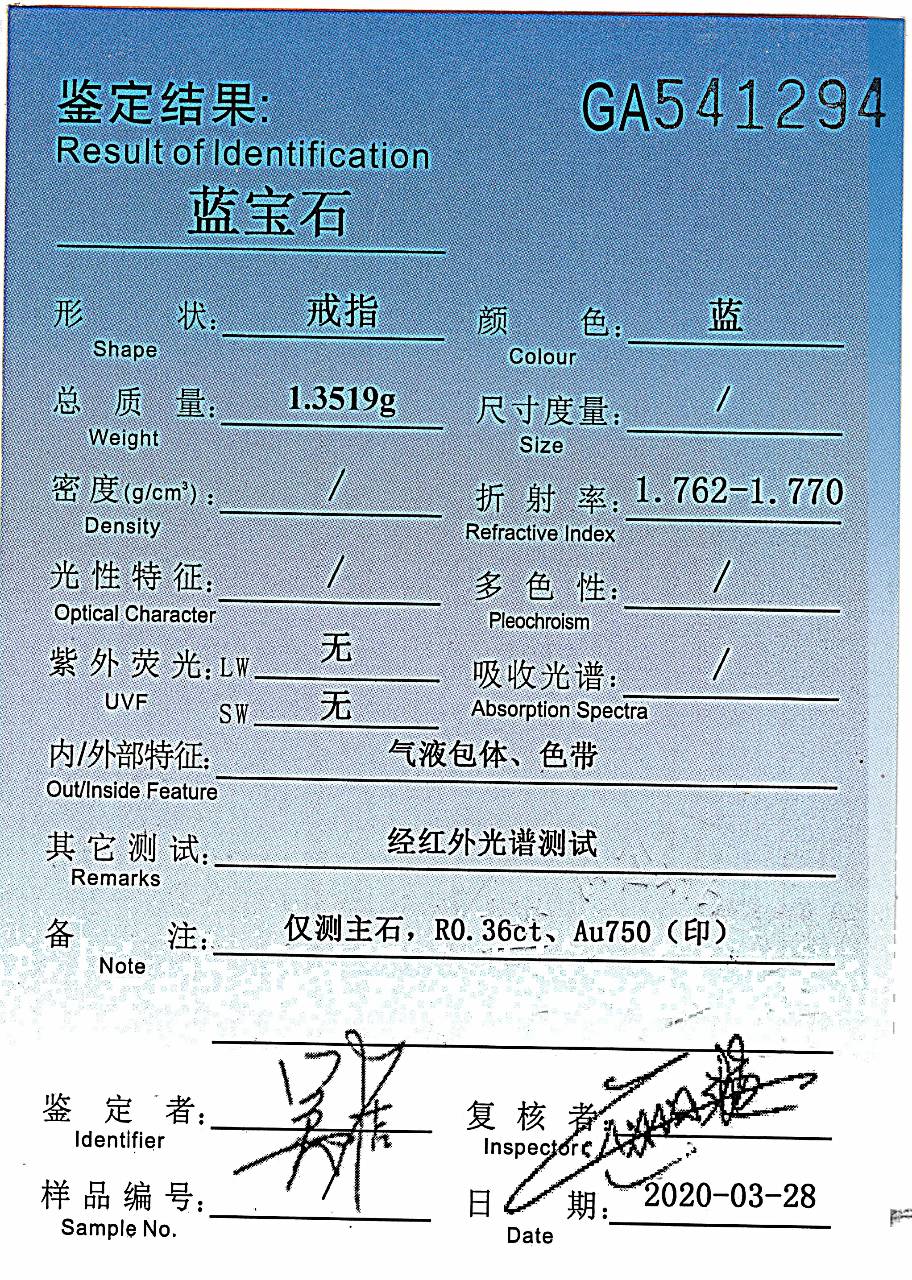 鉴定结果: GA541294
Result of Identification
蓝宝石
形 状: 戒指 颜 色: 蓝
Shape Colour
总 质 量: 1.3519g 尺寸度量: /
Weight Size
密 度(g/cm³): / 折 射 率: 1.762-1.770
Density Refractive Index
光 性 特 征: / 多 色 性: /
Optical Character Pleochroism
紫 外 荧 光: LW 无 吸收光谱: /
UVF SW 无 Absorption Spectra
内/外部特征: 气液包体、色带
Out/Inside Feature
其 它 测 试: 经红外光谱测试
Remarks
备 注: 仅测主石，R0.36ct、Au750（印）
Note
鉴 定 者: 复 核 者:
Identifier Inspector
样 品 编 号: 日 期: 2020-03-28
Sample No. Date